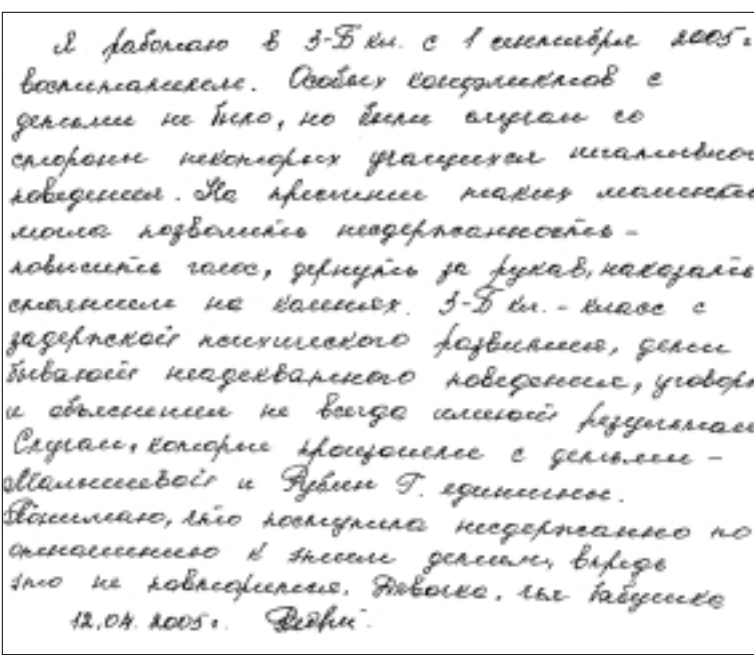 Я работаю в 3-Б кл. с 1 сентября 2005г
воспитателем. Особых конфликтов с
детьми не было, но были случаи со
стороны некоторых учащихся негативного
поведения. На протяжении таких моментов
могла позволить несдержанность -
повысить голос, дернуть за рукав, наказать
стоянием на коленях. 3-Б кл. - класс с
задержкой психического развития, дети
бывают неадекватного поведения, уговоры
и объяснения не всегда имеют результат.
Случаи, которые произошли с детьми -
Малышевой и Рубин Т. единичны.
Понимаю, что поступила несдержанно по
отношению к этим детям, впредь
это не повторится. Девочка, чья бабушка
12.04.2005г.